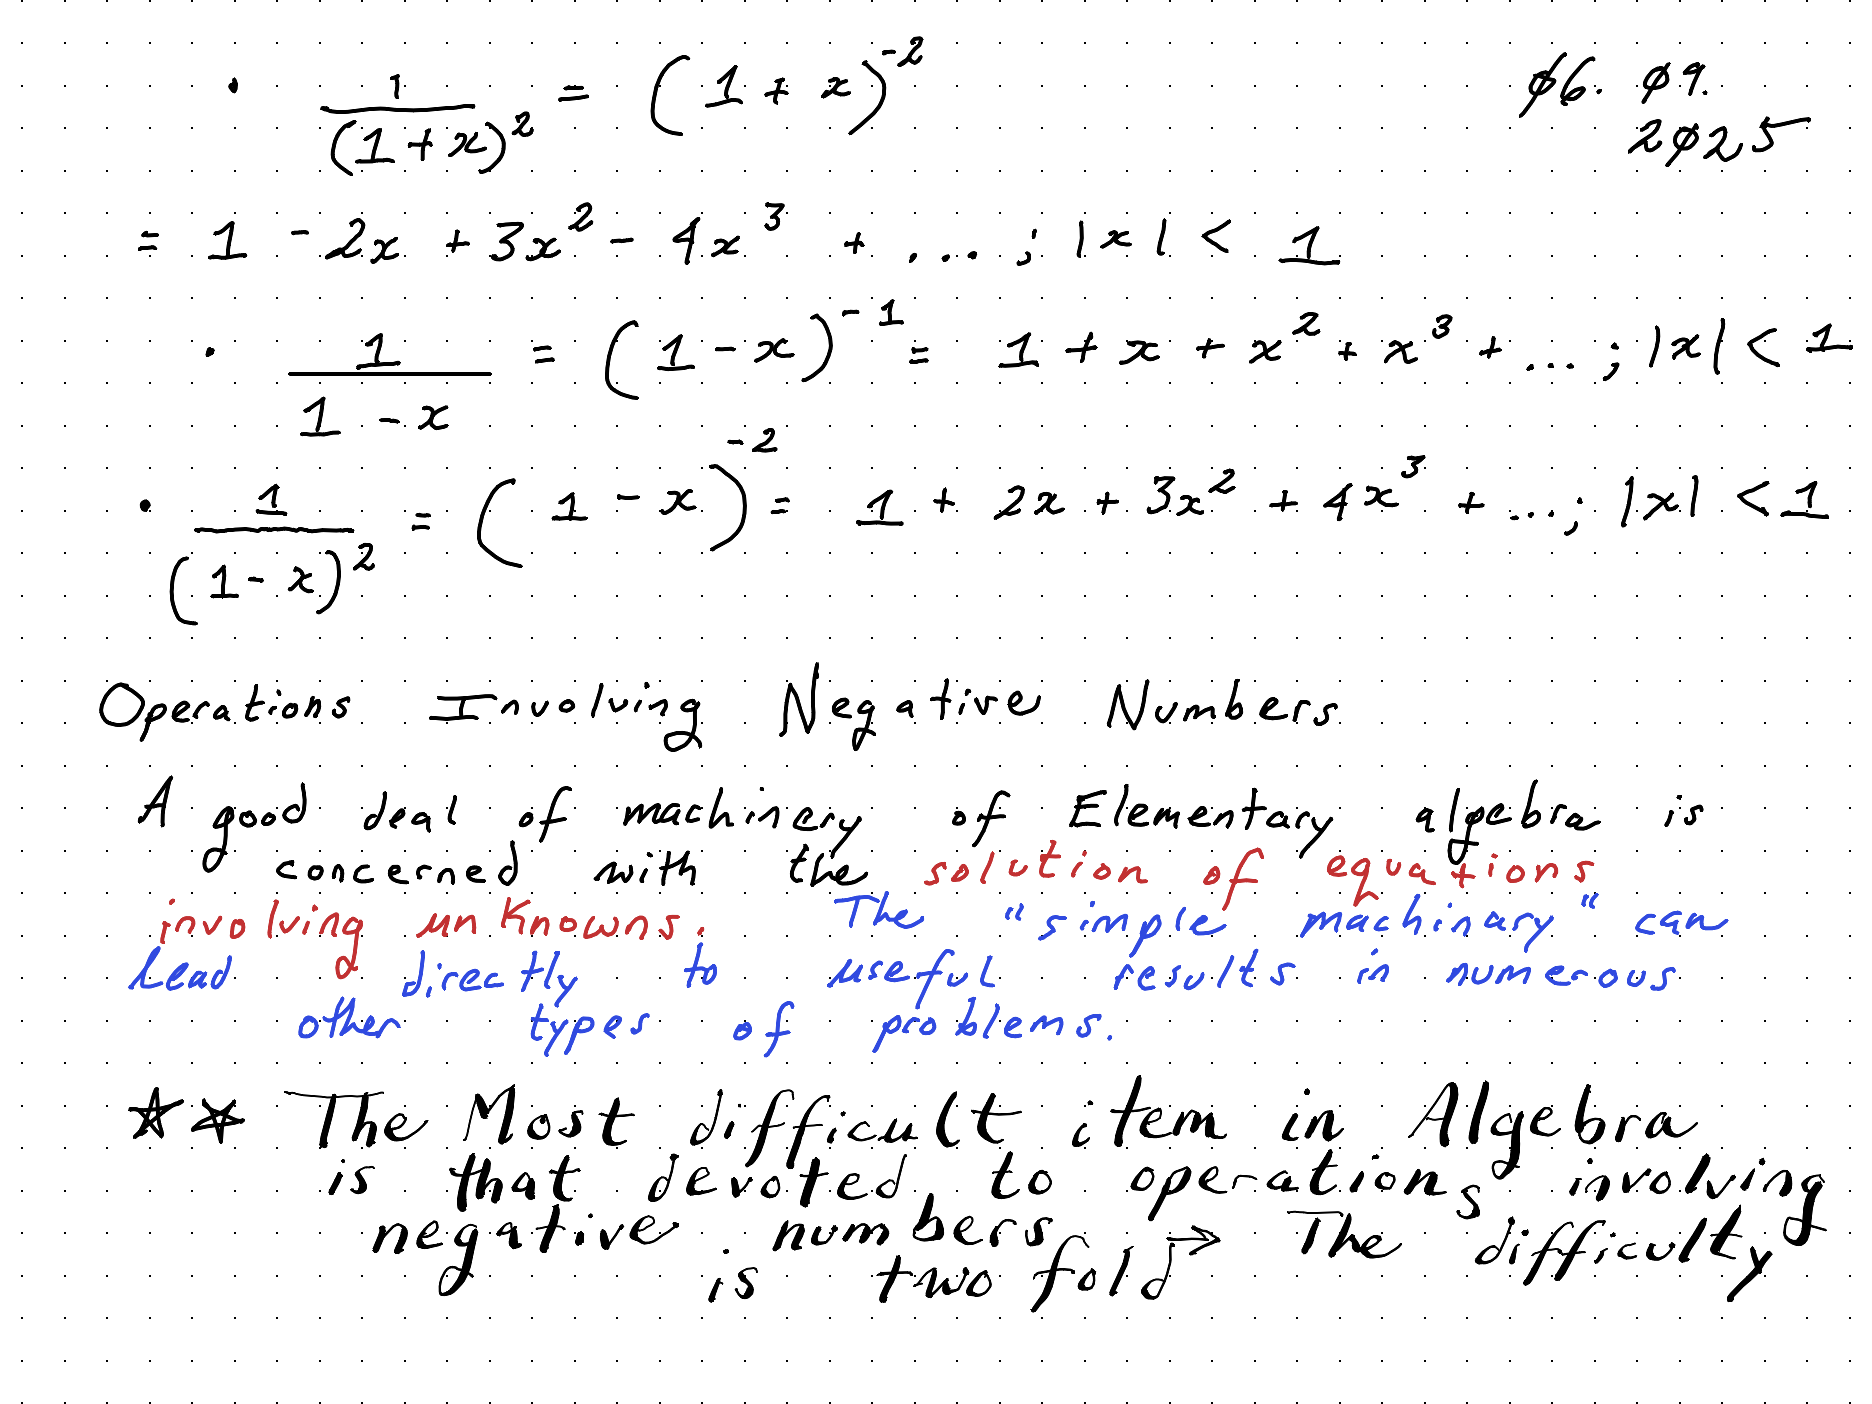 • 1/(1+x)² = (1 + x)⁻²
06. 09.
2025
= 1 - 2x + 3x² - 4x³ + ... ; |x| < 1
• 1/(1 - x) = (1 - x)⁻¹ = 1 + x + x² + x³ + ... ; |x| < 1
• 1/(1 - x)² = (1 - x)⁻² = 1 + 2x + 3x² + 4x³ + ... ; |x| < 1
Operations Involving Negative Numbers
A good deal of machinery of Elementary algebra is
concerned with the solution of equations
involving unknowns. The "simple machinary" can
lead directly to useful results in numerous
other types of problems.
☆☆ The Most difficult item in Algebra
is that devoted to operations involving
negative numbers → The difficulty
is two fold